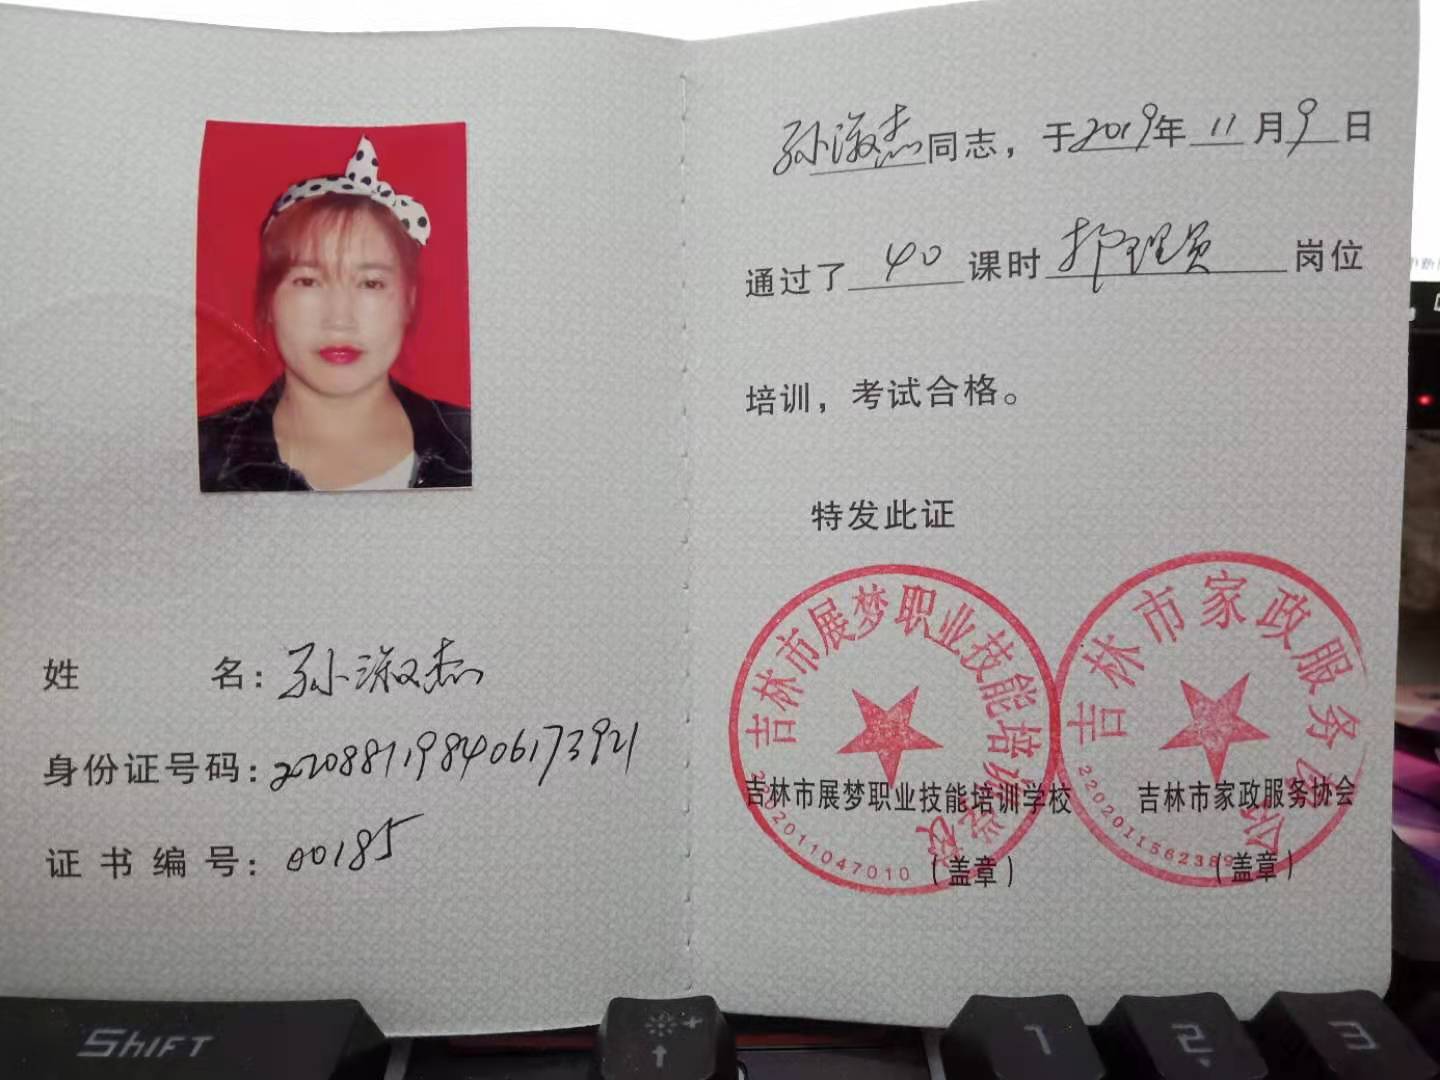 姓 名：孙淑杰
身份证号码：220881198406173921
证书编号：00185
孙淑杰同志，于2019年11月9日
通过了40课时护理员岗位
培训，考试合格。
特发此证
吉林市展梦职业技能培训学校
2202011047010
吉林市展梦职业技能培训学校
（盖章）
吉林市家政服务协会
2202011562389
吉林市家政服务协会
（盖章）
SHIFT
1
2
3